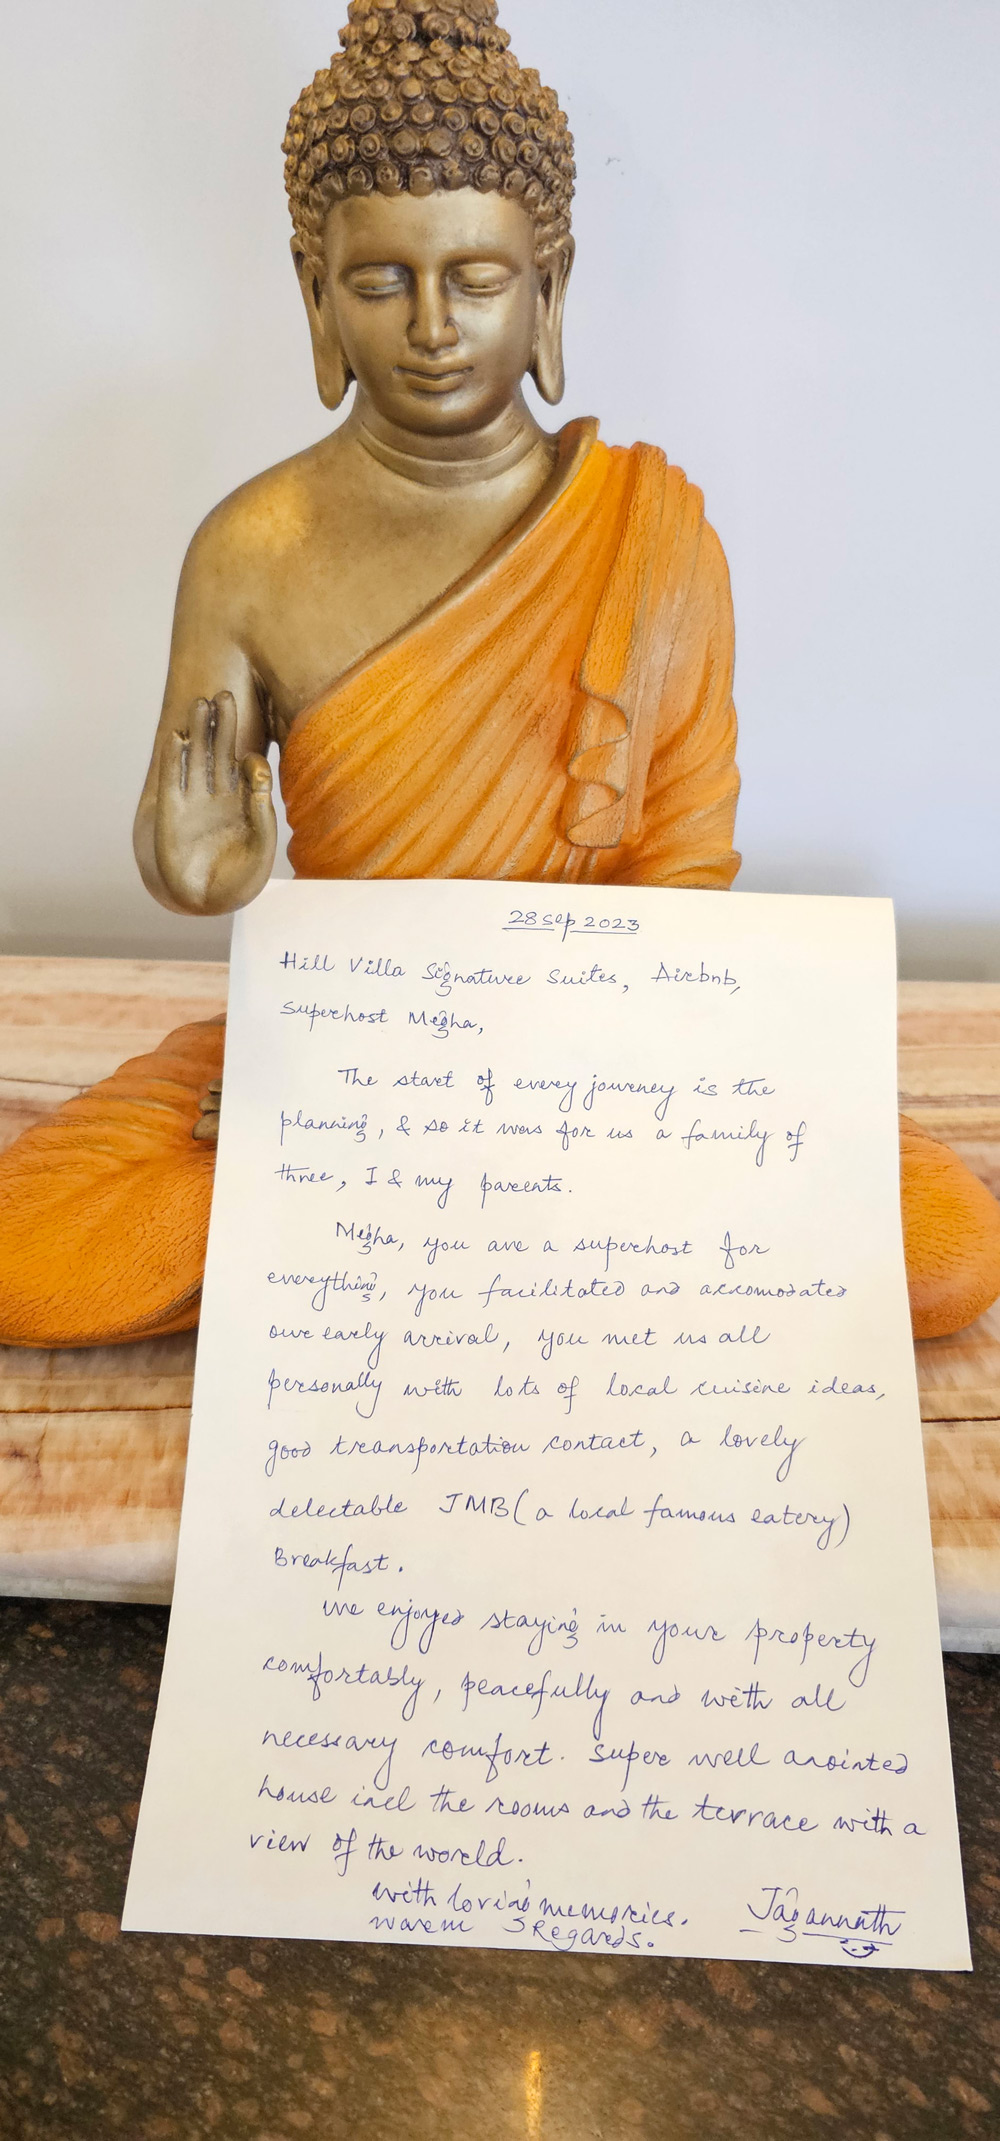 28 Sep 2023
Hill Villa Signature Suites, Airbnb,
Superhost Megha,
The start of every journey is the
planning, & so it was for us a family of
three, I & my parents.
Megha, you are a superhost for
everything, you facilitated and accomodated
our early arrival, you met us all
personally with lots of local cuisine ideas,
good transportation contact, a lovely
delectable JMB (a local famous eatery)
Breakfast.
We enjoyed staying in your property
comfortably, peacefully and with all
necessary comfort. Super well anointed
house incl the rooms and the terrace with a
view of the world.
With loving memories.
Warm Regards.
Jagannath